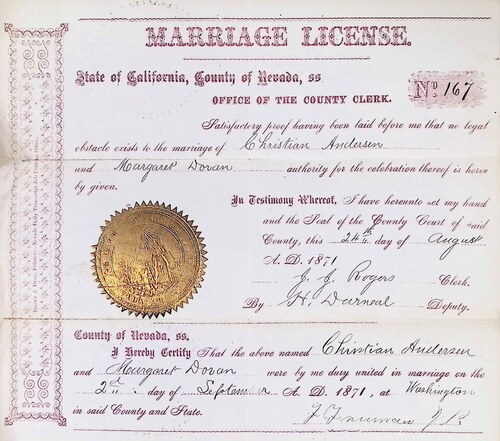 MARRIAGE LICENSE.
State of California, County of Nevada, ss
No 167
OFFICE OF THE COUNTY CLERK.
Satisfactory proof having been laid before me that no legal
obstacle exists to the marriage of Christian Andersen
and Margaret Doran authority for the celebration thereof is hereby
by given.
In Testimony Whereof, I have hereunto set my hand
and the Seal of the County Court of said
County, this 24th day of August
A. D. 1871
J. J. Rogers Clerk.
By H. Darneal Deputy.
County of Nevada, ss.
I Hereby Certify That the above named Christian Andersen
and Margaret Doran were by me duly united in marriage on the
2nd day of September A. D. 1871, at Washington
in said County and State.
J. P.